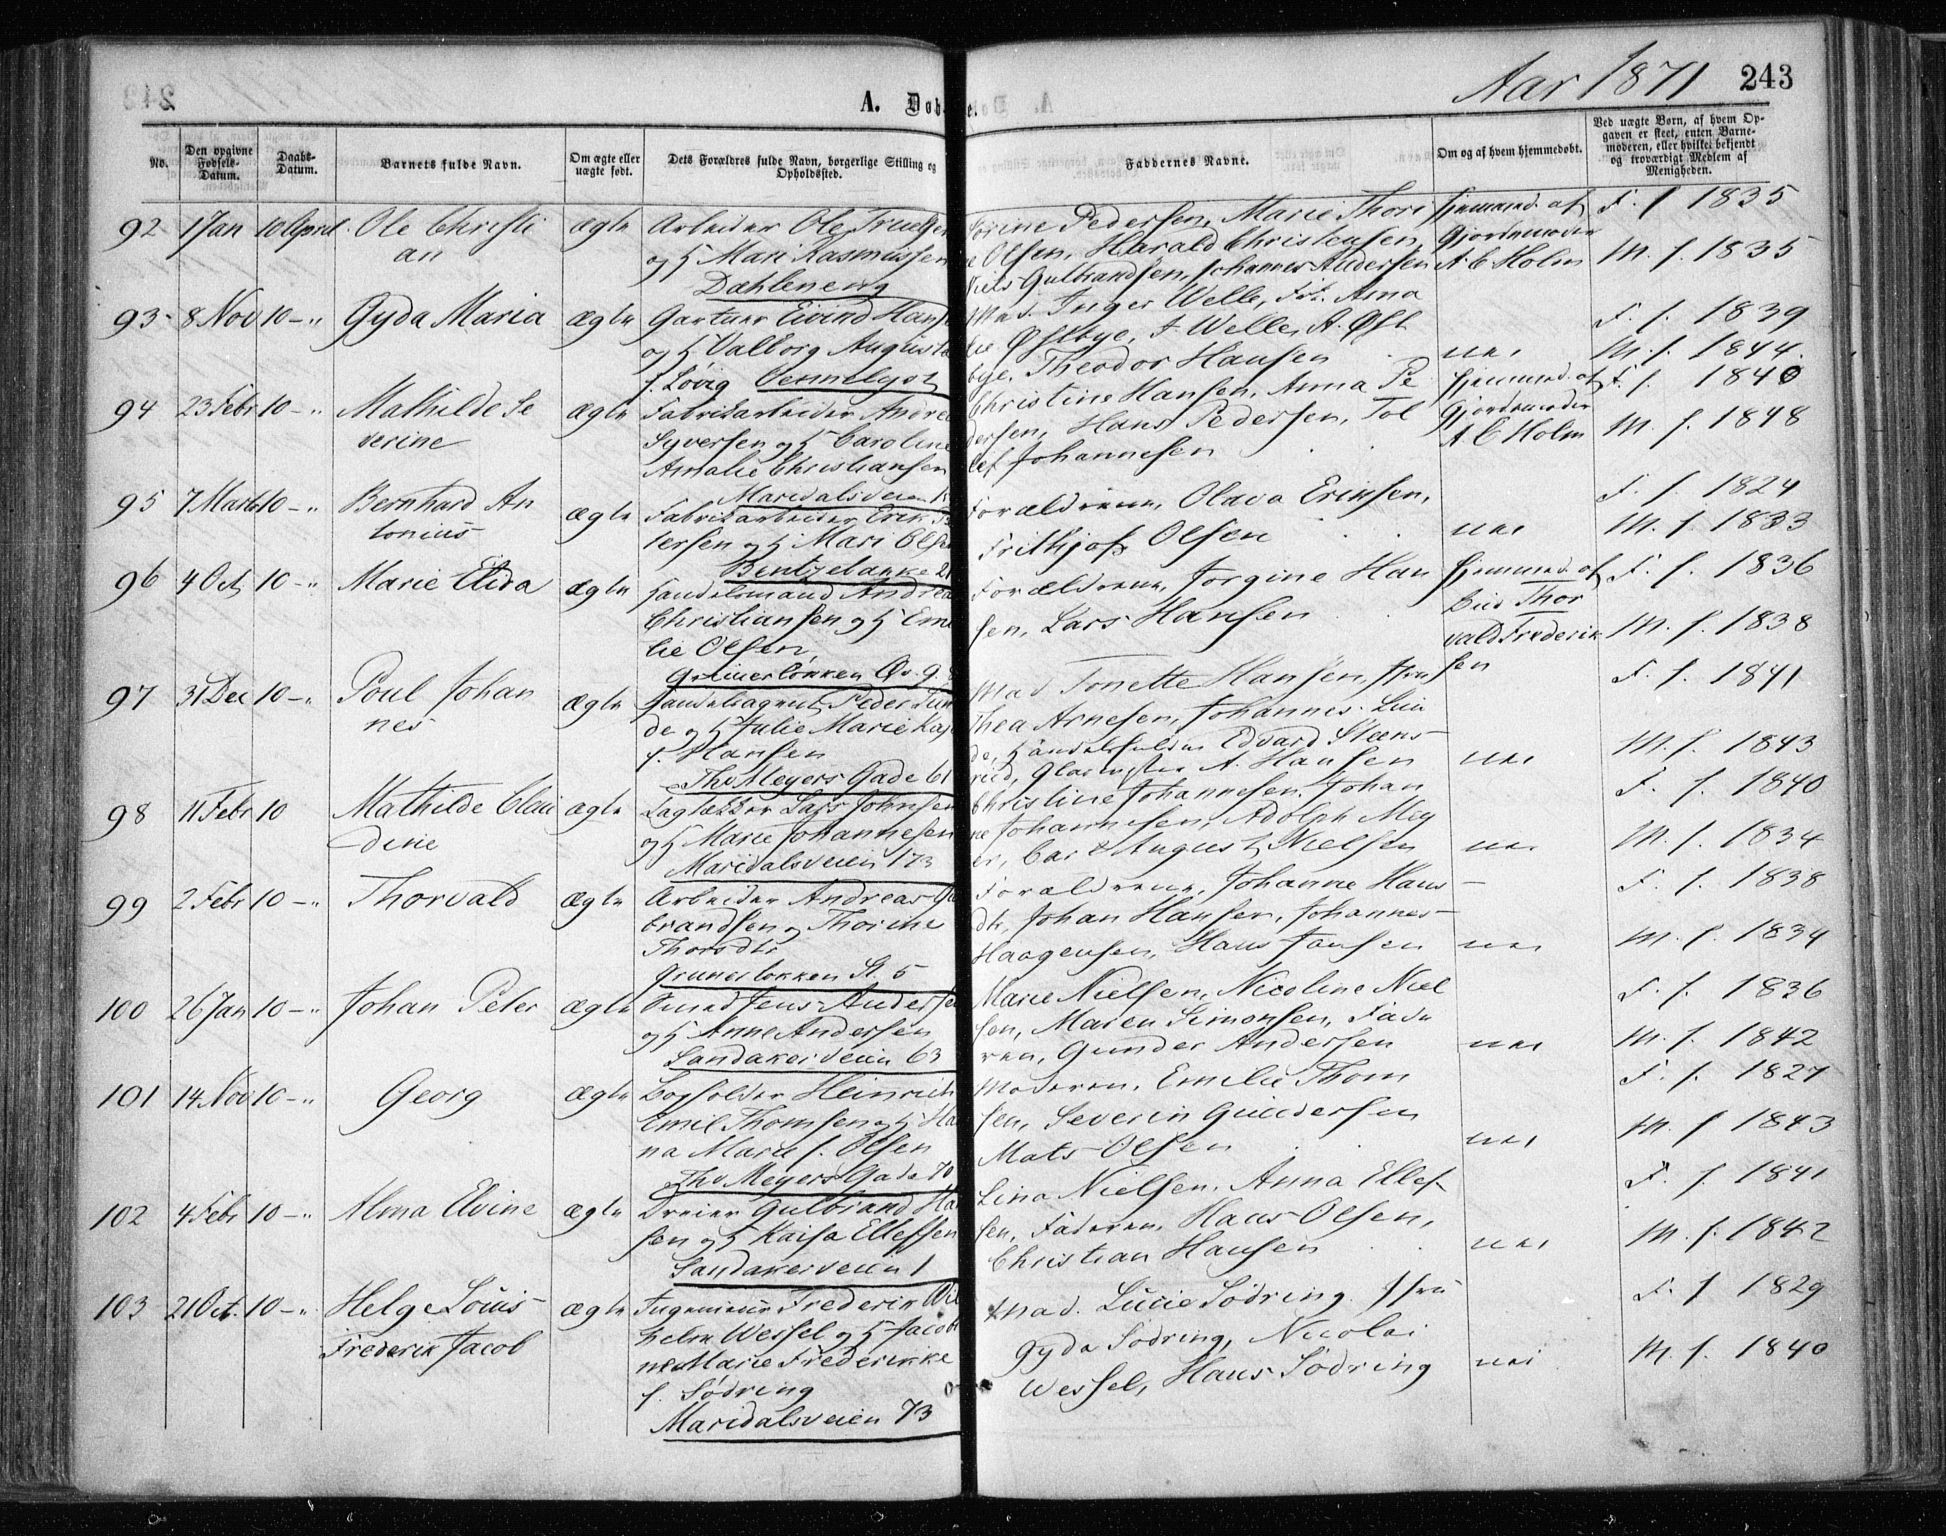 Aar 1871 243
A. Døb
No.
Den opgivne Fødsels-Datum.
Daabs-Datum.
Barnets fulde Navn.
Om ægte eller uægte født.
Dets Forældres fulde Navn, borgerlige Stilling og Opholdssted.
Faddernes Navne.
Om og af hvem hjemmedøbt.
Ved uægte Børn, af hvem Opgaven er skeet, enten Barnemoderen, eller hvilket bekjendt og troværdigt Medlem af Menigheden.
92 1 Jan 10 April Ole Christi
an
ægte
Arbeider Ole Truelsen
og H Mari Rasmussen
Dæhleneng
Pedersen, Marie Thori
Olsen, Harald Christensen,
Gulbrandsen, Johannes Andersen
Hjemmed. af
Gjordemoder
A C Holm
F. f. 1835
M. f. 1835
93 8 Nov 10 — " Gyda Maria
ægte
Gartner Eivind Hans
og H Valborg Augusta
f. Løvig Vennelyst
Mad. Inger Welle, Frk. Anna
Østbye, J Welle, A. Øst
bye, Theodor Hansen
nei
F. f. 1839
M. f. 1844.
94 23 Febr 10 — " Mathilde Se
verine
ægte
Fabrikarbeider Andre
Syversen og H Caroline
Amalie Christiansen
Maridalsveien
Christine Hansen, Anna Pe
dersen, Hans Pedersen, Tol
lef Johannesen
Hjemmed. af
Gjordemoder
A C Holm
F. f. 1840
M. f. 1848
95 7 Marts 10 — " Bernhard An
tonius
ægte
Fabrikarbeider Erik
tersen og H Mari Olse
Bentzebakke 21
Forældrene, Olava Eriksen,
Frithjof Olsen
nei
F. f. 1824
M. f. 1833
96 4 Oct 10 — " Marie Elida
ægte
Handelsmand Andrea
Christiansen og H Eme
lie Olsen,
Grünerløkken Øv. 9.
Forældrene, Jorgine Han
sen, Lars Hansen
Hjemmed af
Bud Thor
vald Frederik
sen
F. f. 1836
M. f. 1838
97 31 Dec 10 — " Poul Johan
nes
ægte
Handelsagent Peder
de og H Julie Marie Kaja
f. Hansen
Thv Meyers Gade 61
Mad Tonette Hansen, Jfru
Thea Arnesen, Johannes
de, Handelsfuldm Edvard Steens
rud, Glasmester A. Hansen
nei
F. f. 1841
M. f. 1843
98 11 Febr 10 Mathilde Clau
dine
ægte
Lars Johnsen
og H Marie Johannesen
Maridalsveien 173
Christine Johannesen, Johan
ne Johannesen, Adolph Mey
er, Carl August Nielsen
nei
F. f. 1840
M. f. 1834
99 2 Febr 10 — " Thorvald
ægte
Arbeider Andreas Gul
brandsen og Thorine
Thorsdtr
Grünerløkken St. 5
Forældrene, Johanne Hans
dtr, Johan Hansen, Johannes
Haagensen, Hans Jansen
nei
F. f. 1838
M. f. 1834
100 26 Jan 10 — " Johan Peter
ægte
Smed Jens Anderse
og H Anne Andersen
Sandakerveien 63
Marie Nielsen, Nicoline Niel
sen, Maren Simonsen, Fade
ren, Gunder Andersen
nei
F. f. 1836
M. f. 1842
101 14 Nov 10 — " Georg
ægte
Bogholder Heinrich
Emil Thomsen og H Ha
na Marie f. Olsen
Thv Meyers Gade 70
Moderen, Emilie Thom
sen, Severin Gundersen
Mats Olsen
nei
F. f. 1827
M. f 1843
102 4 Febr 10 — " Alma Elvine
ægte
Dreier Gulbrand Han
sen og H Kaisa Ellefsen
Sandakerveien 1
Lina Nielsen, Anna Ellef
sen, Faderen, Hans Olsen,
Christian Hansen
nei
F. f. 1841
M. f. 1842
103 21 Oct. 10 — " Helge Louis
Frederik Jacob
ægte
Ingenieur Frederik Wil
helm Wessel og H Jacobi
ne Marie Frederikke
f. Sødring
Maridalsveien 73
Mad. Lucie Sødring. Jfru
Gyda Sødring, Nicolai
Wessel, Hans Sødring
nei
F. f 1829
M. f. 1840